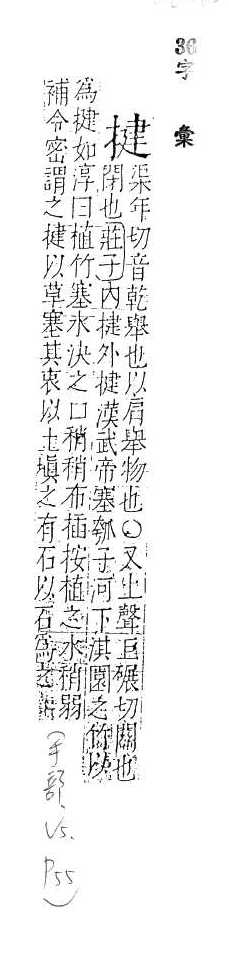 36字 彙
揵
渠年切音乾舉也以肩舉物也〇又上聲巨碾切關也
閉也莊子內揵外揵漢武帝塞瓠子河下淇園之竹以
為揵如淳曰植竹塞水決之口稍稍布插按植之水稍弱
補令密謂之揵以草塞其裏以土塡之有石以石為之
(手部, V5. P55)